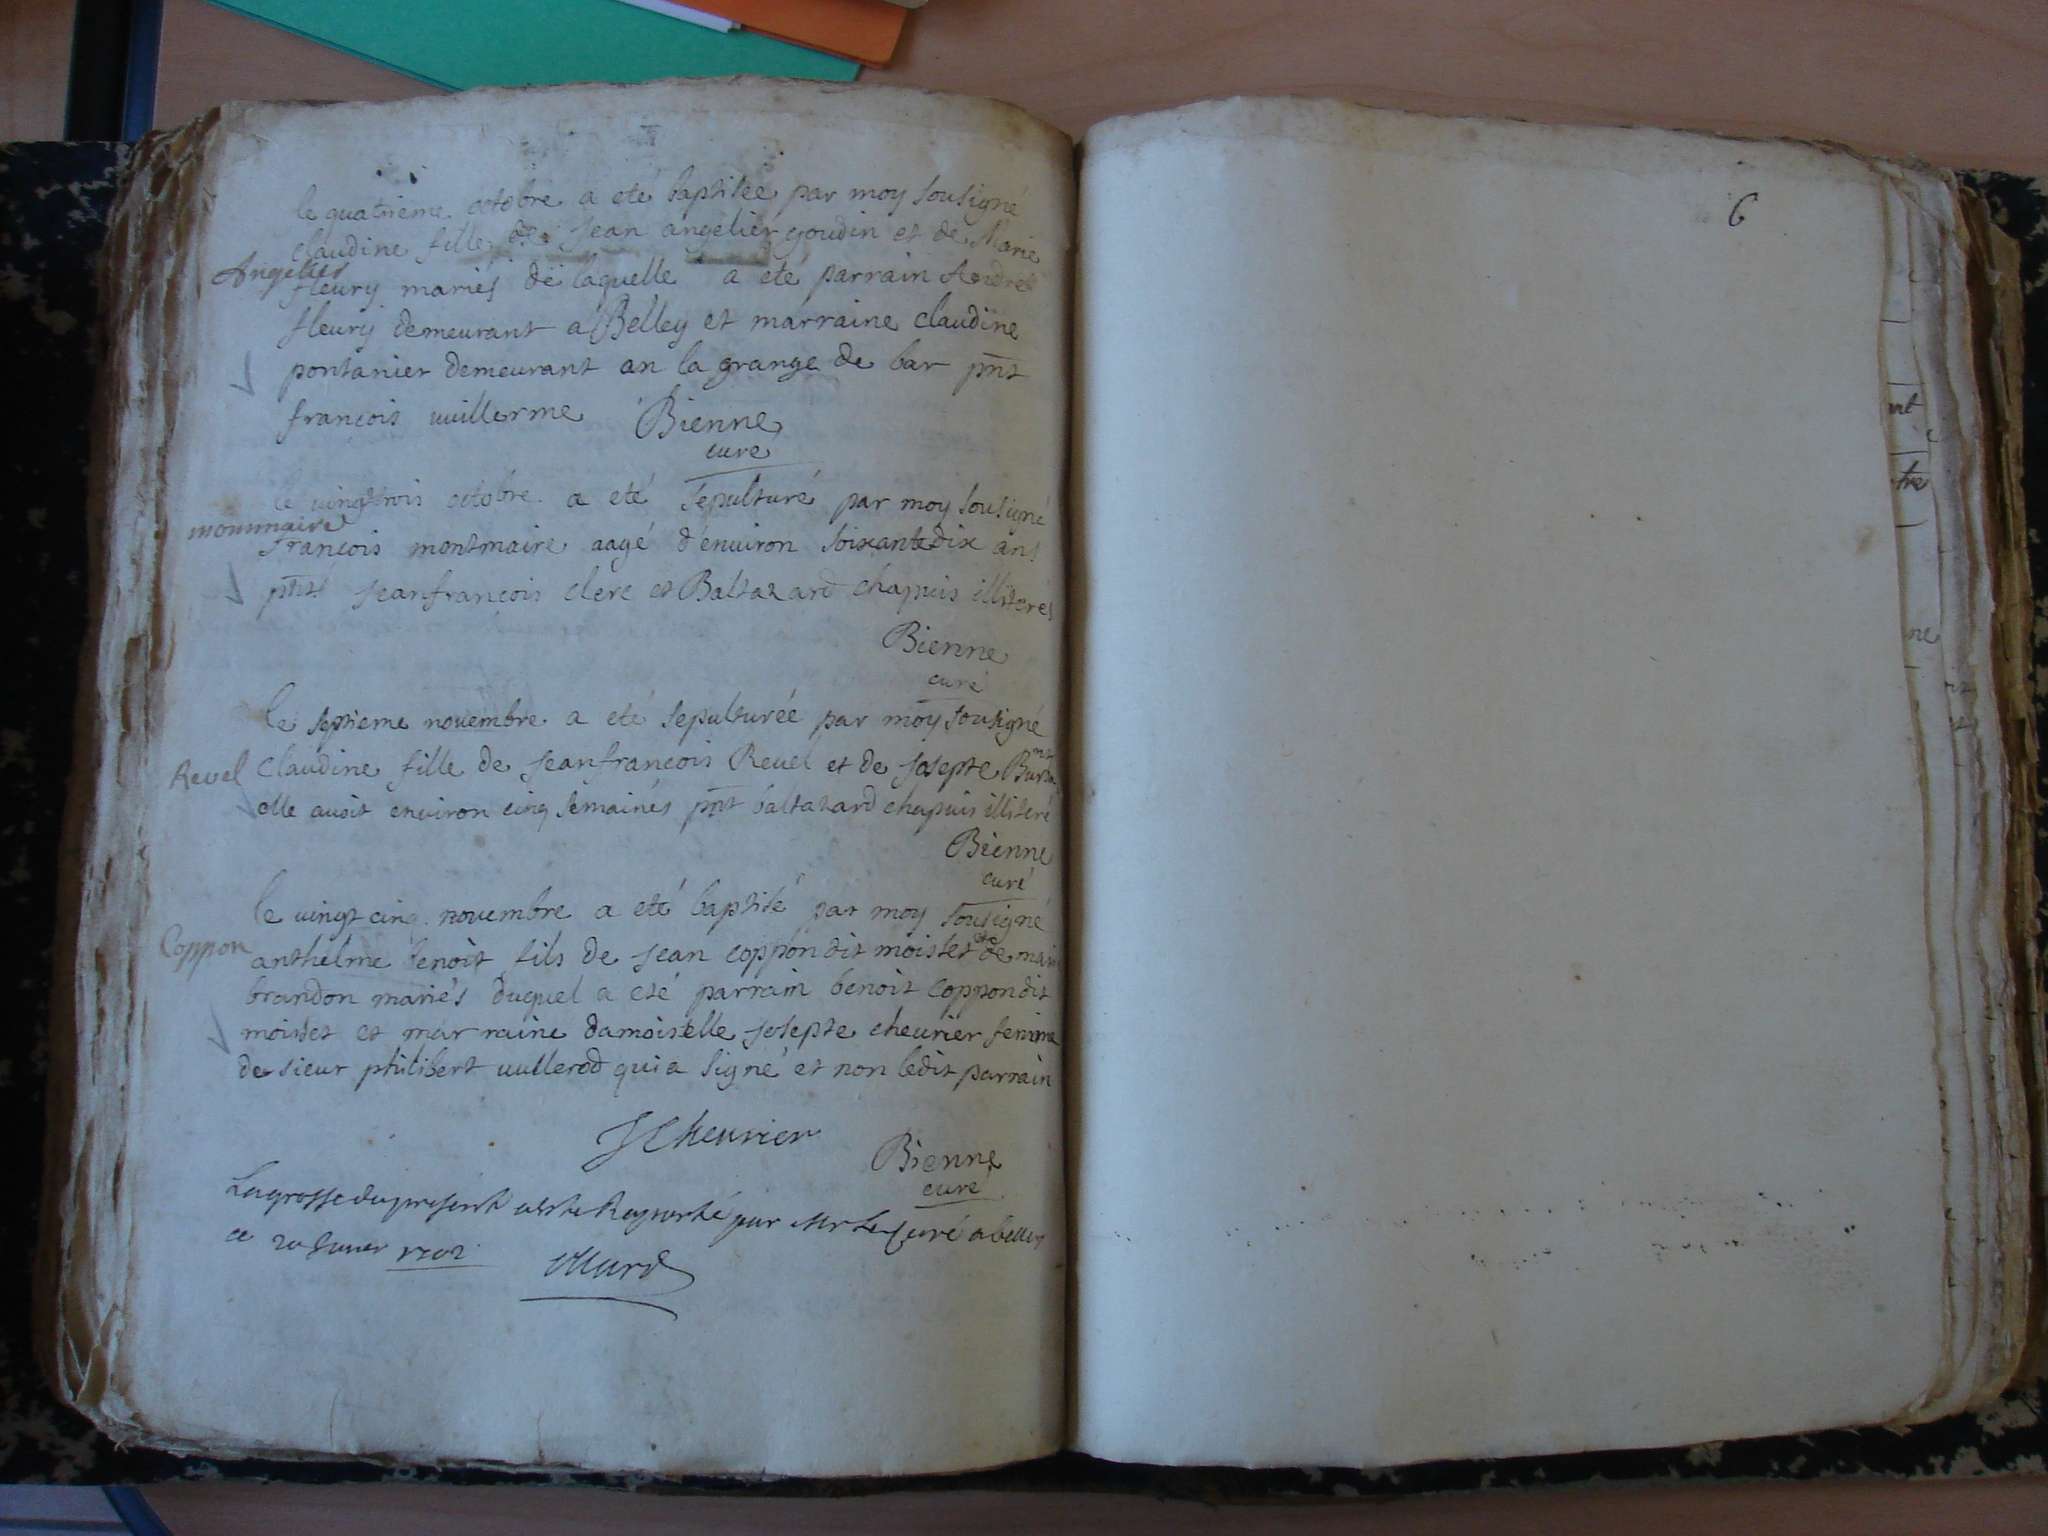 le quatrieme octobre a eté baptisée par moy sousigné
claudine fille de Jean angelier goudin et de Marie
Angelier
fleury mariés de laquelle a eté parrain André
fleury demeurant a Belley et marraine claudine
pontanier demeurant an la grange de bar pnt
françois vuillerme Bienne
curé
le vingtrois octobre a eté sepulturé par moy sousigné
monmaire
françois montmaire aagé d'environ soixante dix ans
pnts Jeanfrançois clerc et Baltazard chapuis illiterés
Bienne
curé
le septieme novembre a eté sepulturée par moy sousigné
Revel claudine fille de Jeanfrancois Revel et de Josepte
elle avoit environ cinq semaines pnt baltazard chapuis illiteré
Bienne
curé
le vingt cinq novembre a eté baptisé par moy sousigné
Coppon anthelme benoit fils de Jean coppon dit moisset et de marie
brandon mariés duquel a eté parrain benoit coppon dit
moisset et marraine damoiselle Josepte chevrier femme
de sieur philibert vullerod qui a signé et non ledit parrain
J Chevrier
Bienne
curé
La grosse du present este Raporté par Mr le Curé a belley
ce 20 1702
6